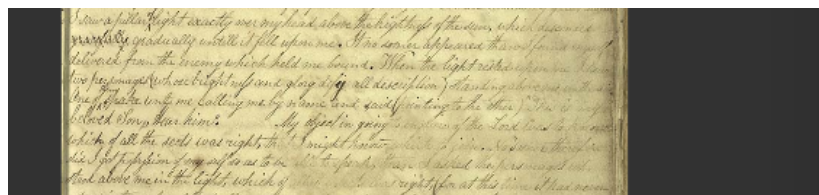 I saw a pillar of light exactly over my head above the brightness of the sun, which descended
gradually untill it fell upon me. It no sooner appeared than I found myself
delivered from the enemy which held me bound. When the light rested upon me
two personages (whose brightness and glory defy all description) standing above me in the air
One of spake unto me calling me by name and said (pointing to the other)
beloved Son, Hear him. My object in going to enquire of the Lord was to know
which of all the sects was right, th might know which to join. No sooner therefore
did I get possession of my self so as to be able to speak, than I asked the personages who
stood above me in the light, which of right, (for at this time it had never